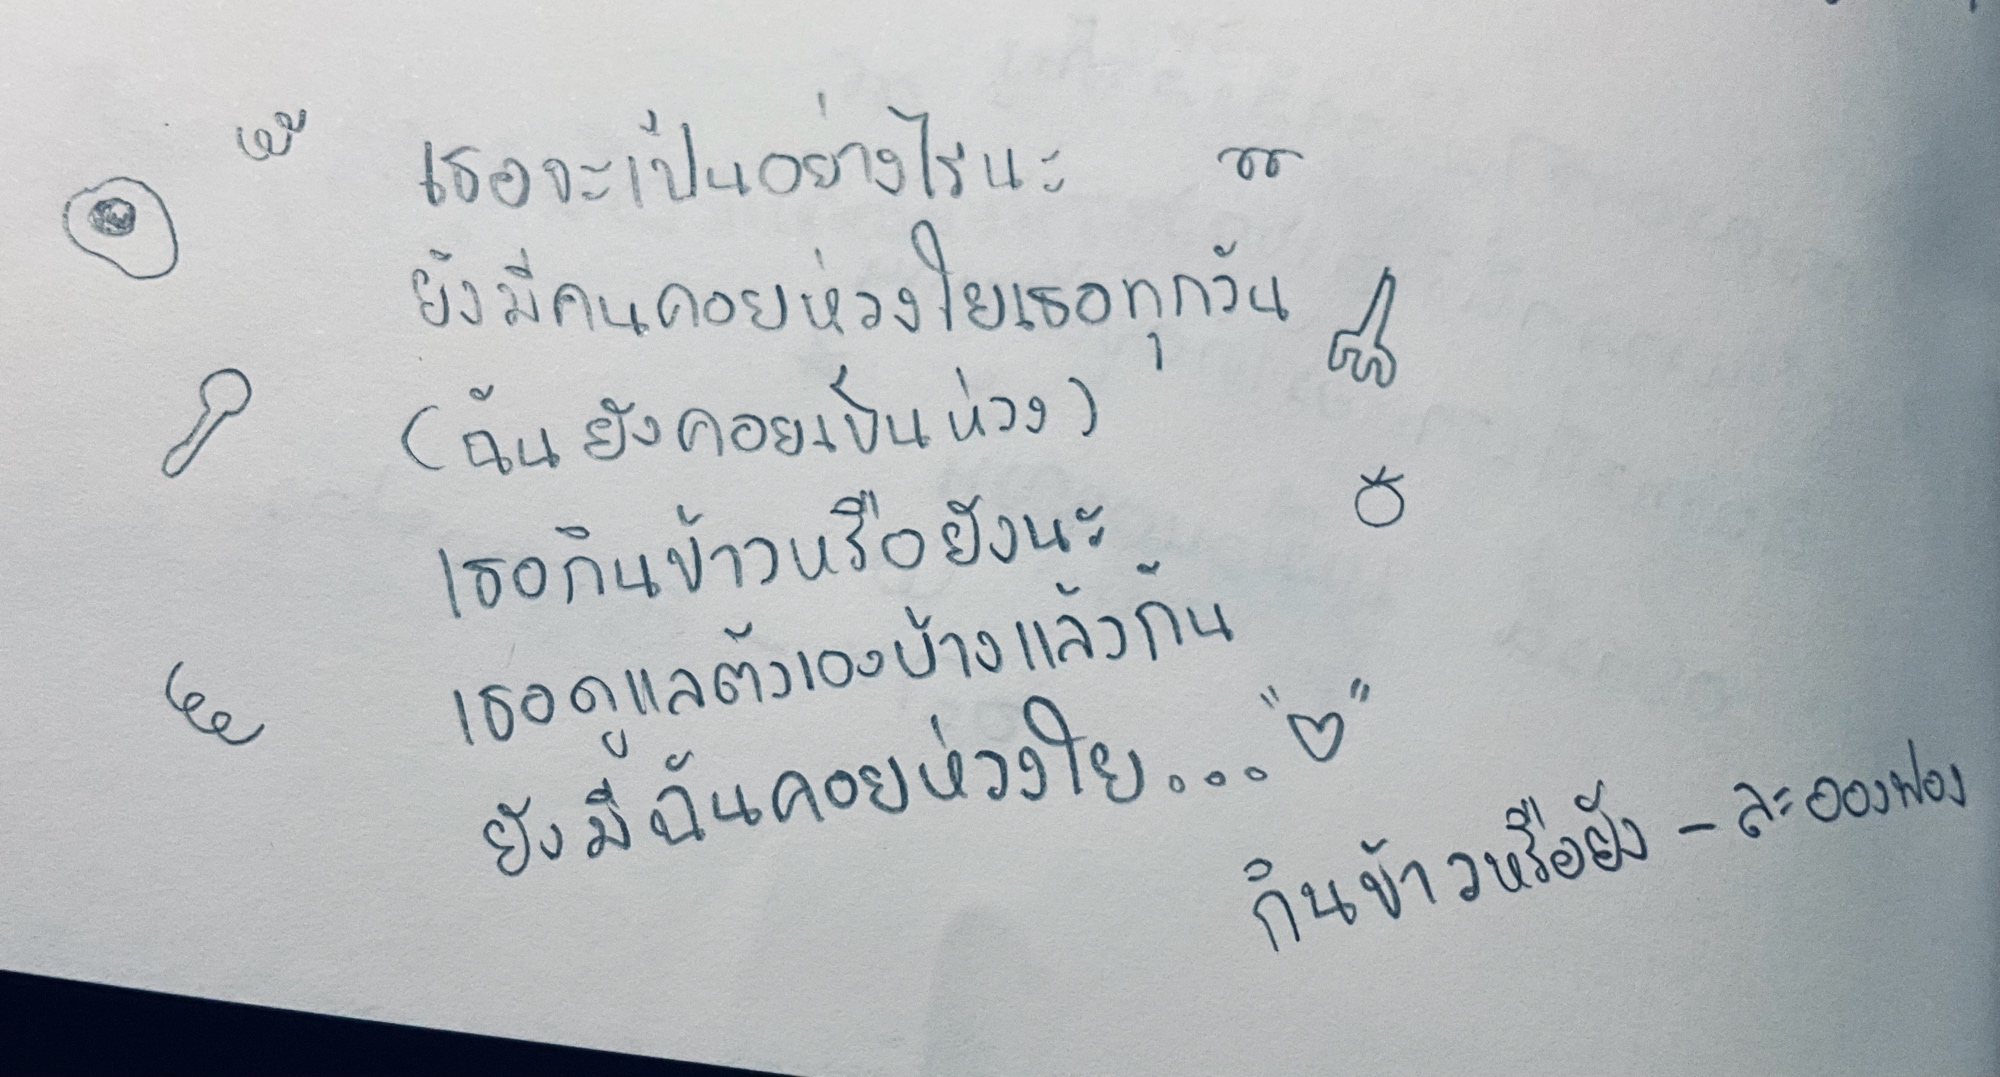 เธอจะเป็นอย่างไรนะ
ยังมีคนคอยห่วงใยเธอทุกวัน
(ฉันยังคอยเป็นห่วง)
เธอกินข้าวหรือยังนะ
เธอดูแลตัวเองบ้างแล้วกัน
ยังมีฉันคอยห่วงใย... "♡"
กินข้าวหรือยัง - ละอองฟอง